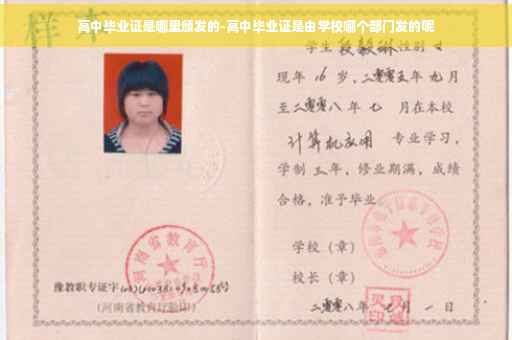 高中毕业证是哪里颁发的-高中毕业证是由学校哪个部门发的呢
样本
学生段毅琳性别女
现年16岁,二零零五年九月
至二零零八年七 月在本校
计算机应用 专业学习,
学制三年,修业期满,成绩
合格,准予毕业
学校(章)
校长(章)
二零零八年七月一日
河南省教育厅
豫教职专证字
(河南省教育厅验印)